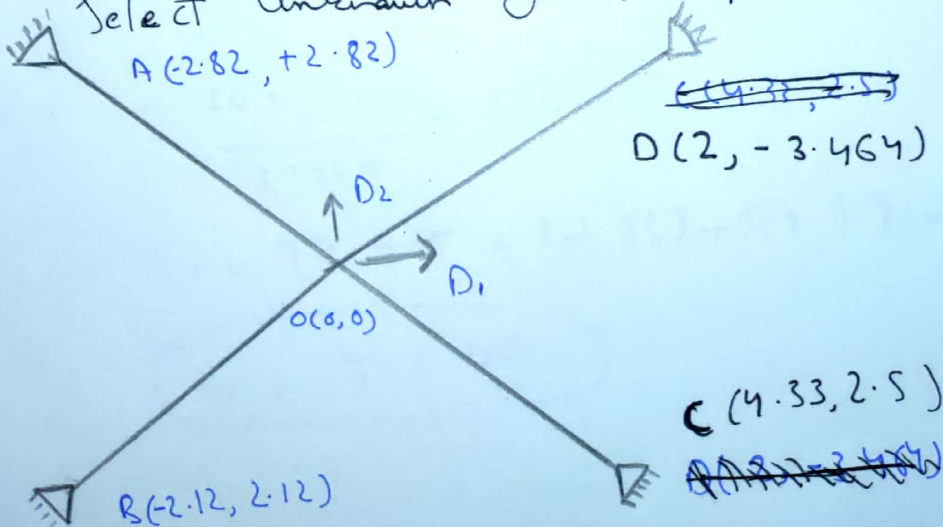 Select
A (-2.82, +2.82)
D (2, -3.464)
D2
D1
O(0,0)
C (4.33, 2.5)
B(-2.12, 2.12)